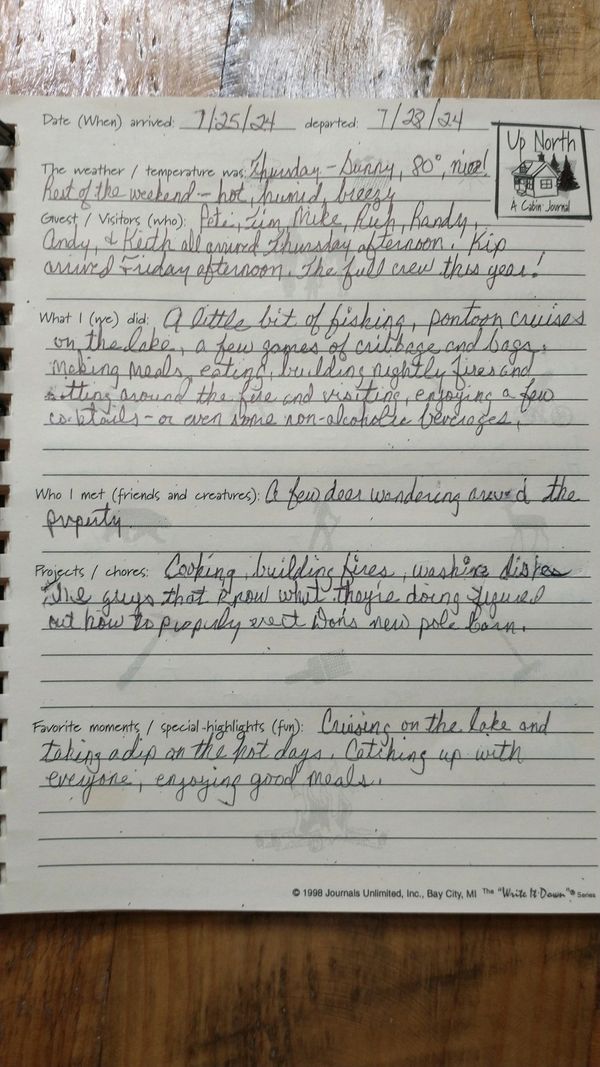 Date (When) arrived: 7/25/24 departed: 7/28/24
Up North
A Cabin Journal
The weather / temperature was: Thursday - Sunny, 80°, nice!
Rest of the weekend - hot, humid, breezy
Guest / Visitors (who): Pete, Tim, Mike, Rich, Randy,
Andy, & Keith all arrived Thursday afternoon. Kip
arrived Friday afternoon. The full crew this year!
What I (we) did: A little bit of fishing, pontoon cruises
on the lake, a few games of cribbage and bags.
Making meals, eating, building nightly fires and
sitting around the fire and visiting, enjoying a few
cocktails - or even some non-alcoholic beverages.
Who I met (friends and creatures): A few deer wandering around the
property.
Projects / chores: Cooking, building fires, washing dishes
The guys that know what they're doing figured
out how to properly erect Don's new pole barn.
Favorite moments / special-highlights (fun): Cruising on the lake and
taking a dip on the hot days. Catching up with
everyone, enjoying good meals.
© 1998 Journals Unlimited, Inc., Bay City, MI The "Write It Down"® Series